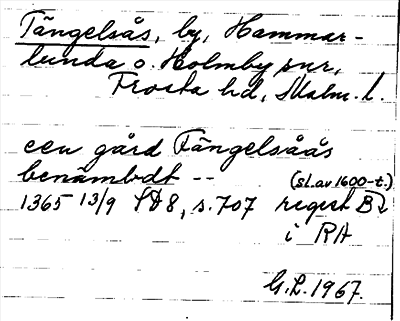 Tängelsås, by, Hammar-
lunda o. Holmby snr,
Frosta hd, Malm. l.
een gård Tängelsåås
benämbdt --
(sl. av 1600-t.)
1365 13/9 SD 8, s. 707 regest B
i RA
G.L. 1967.